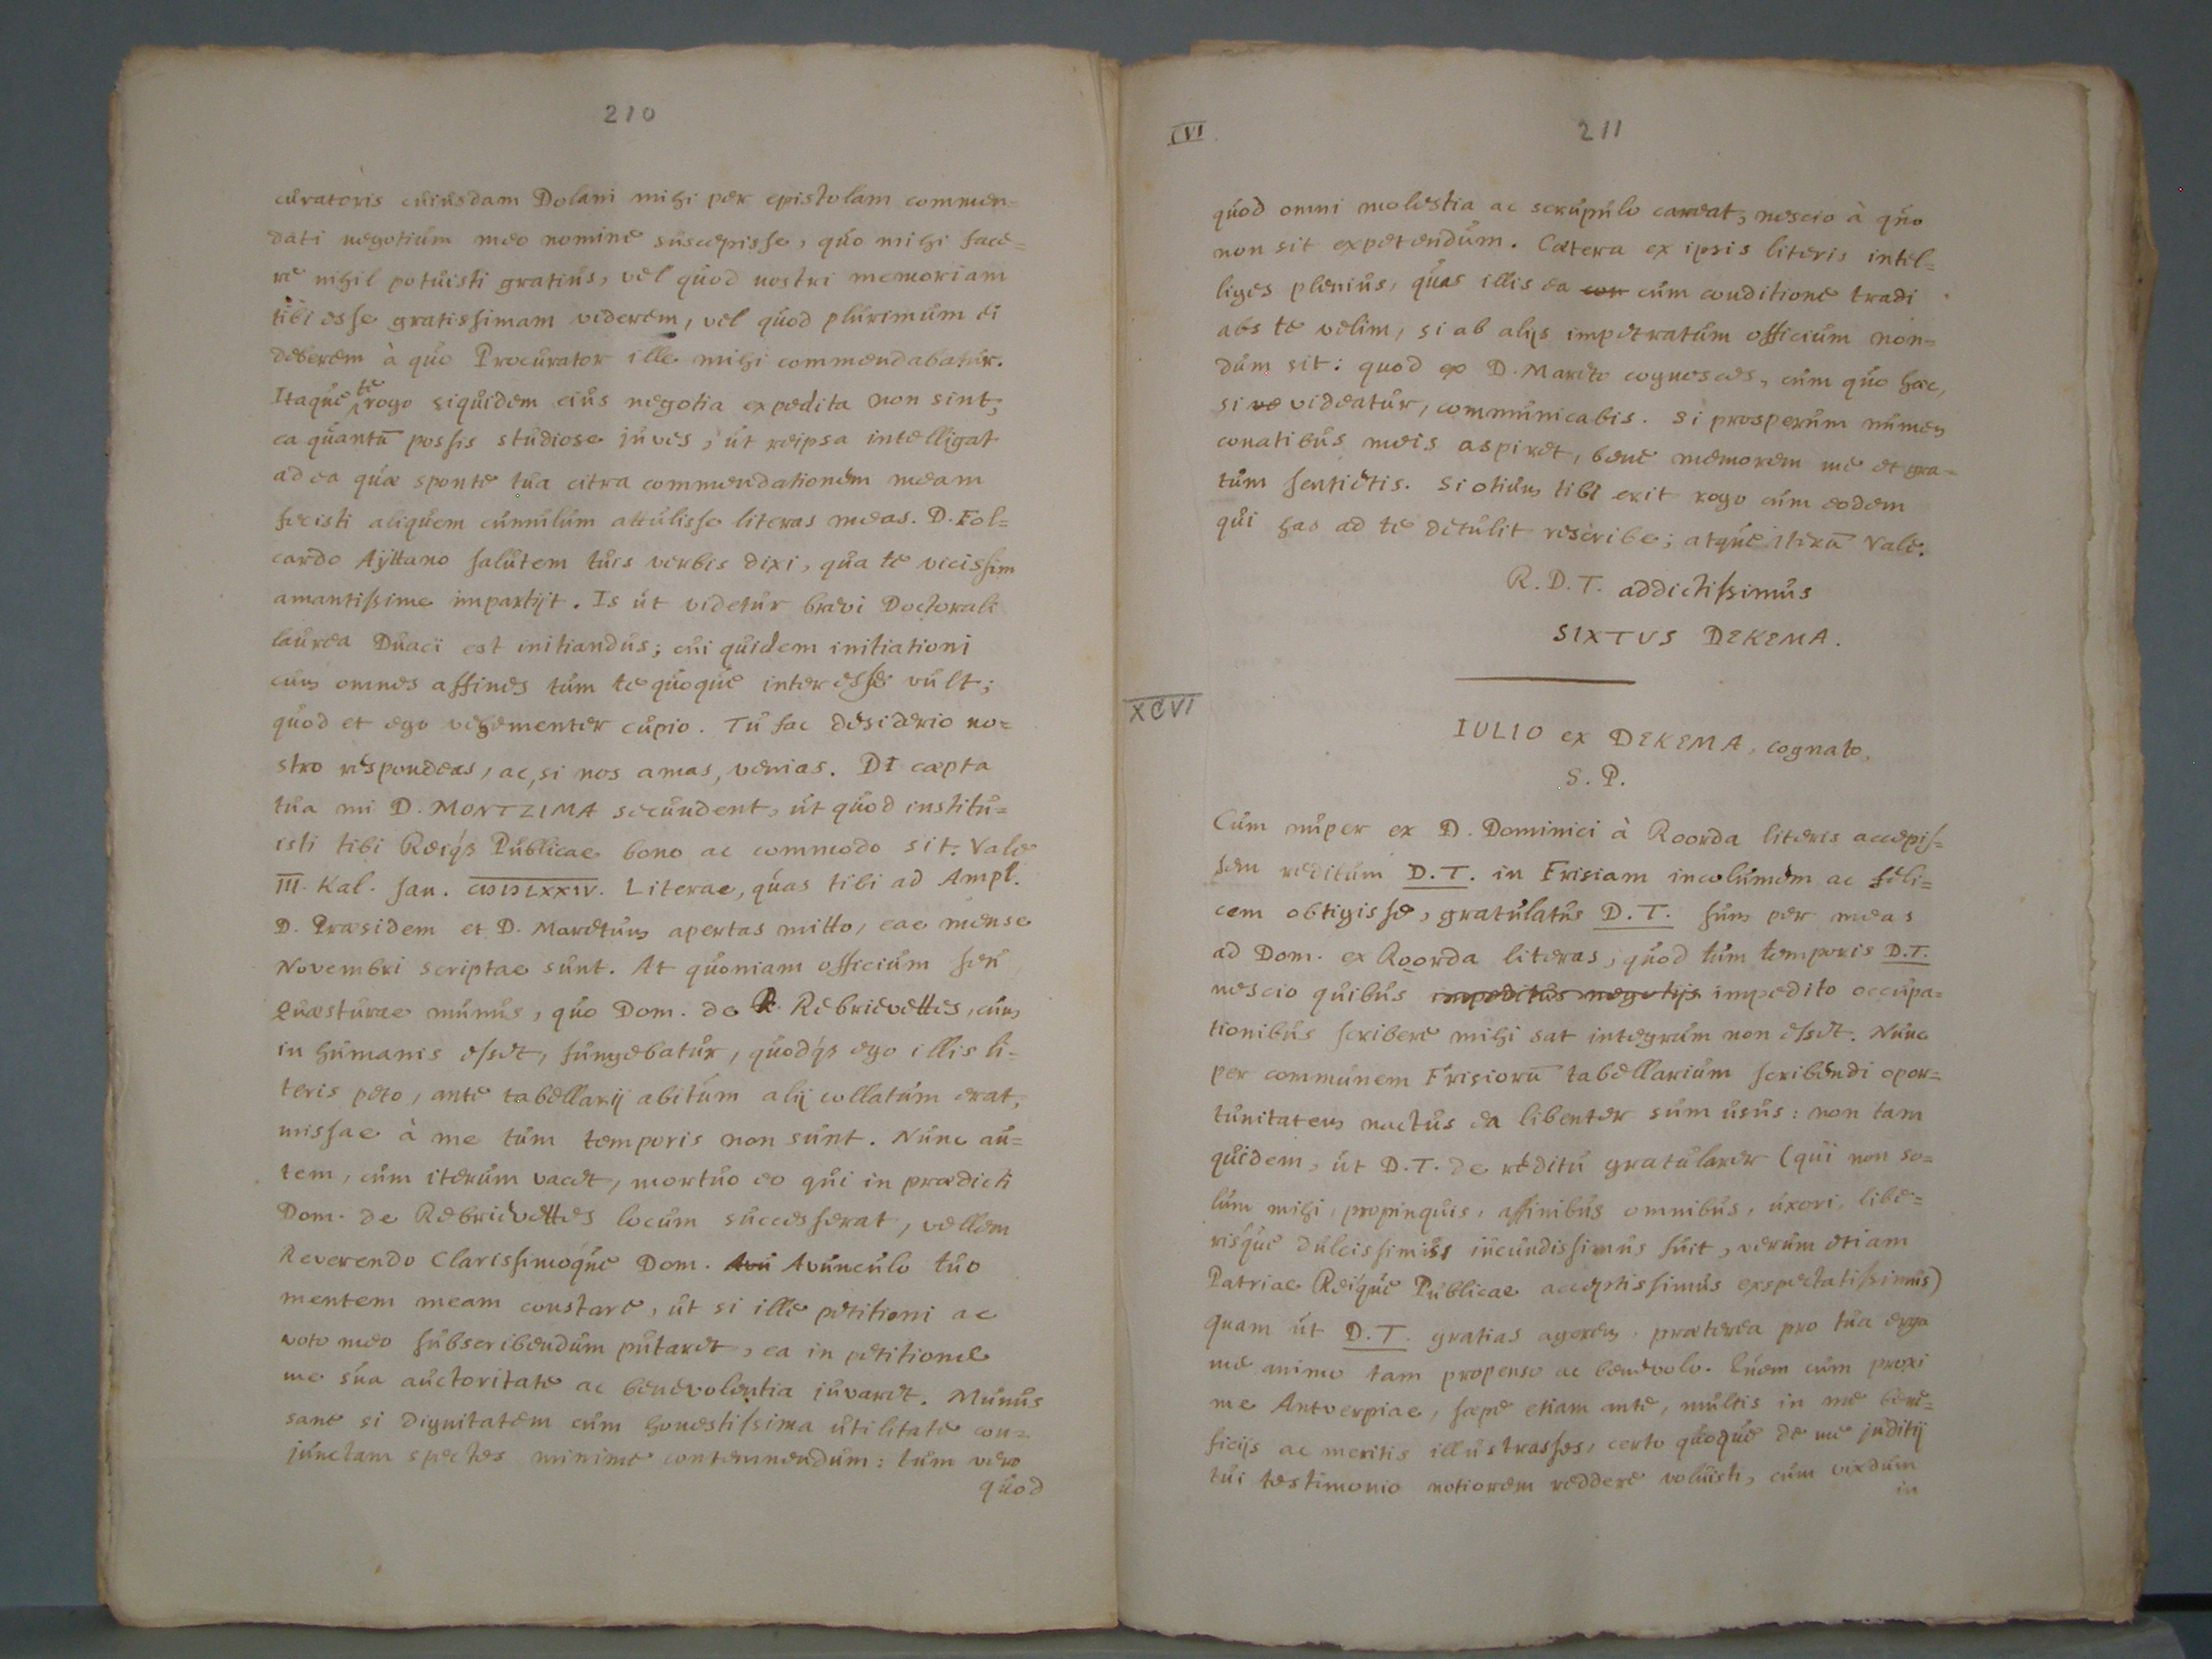 210
curatoris cuiusdam Dolani mihi per epistolam commen=
dati negotium meo nomine suscepisse, quo mihi face=
re nihil potuisti gratius, vel quod nostri memoriam
tibi esse gratissimam viderem, vel quod plurimum ei
deberem à quo Procurator ille mihi commendabatur.
Itaque te rogo siquidem eius negotia expedita non sint,
ea quantū possis studiose iuves, ut reipsa intelligat
ad ea quæ sponte tua citra commendationem meam
fecisti aliquem cumulum attulisse literas meas. D. Fol=
cardo Aÿttano salutem tuis verbis dixi, qua te vicissim
amantissime impartijt. Is ut videtur brevi Doctorali
laurea Duaci est initiandus; cui quidem initiationi
cum omnes affines tum te quoque interesse vult;
quod et ego vehementer cupio. Tu fac desiderio no=
stro respondeas, ac, si nos amas, venias. DI cæpta
tua mi D. MONTZIMA secundent, ut quod institu=
isti tibi Reiqꝫ Publicae bono ac commodo sit. Vale
III. Kal. Jan. CIƆIƆLXXIV. Literae, quas tibi ad Ampl.
D. Præsidem et D. Maretum apertas mitto, eae mense
Novembri scriptae sunt. At quoniam officium seu
Quæsturae munus, quo Dom. de R. Rebrievettes, cum
in humanis esset, fungebatur, quodqꝫ ego illis li=
teris peto, ante tabellarij abitum alij collatum erat,
missae à me tum temporis non sunt. Nunc au=
tem, cum iterum vacet, mortuo eo qui in prædicti
Dom. de Rebrievettes locum successerat, vellem
Reverendo Clarissimoque Dom. Avu Avunculo tuo
mentem meam constare, ut si ille petitioni ac
voto meo subscribendum putaret, ea in petitione
me sua auctoritate ac benevolentia iuvaret. Munus
sane si dignitatem cum honestissima utilitate con=
junctam spectes minime contemnendum: tum vero
quod
CVI
211
quod omni molestia ac scrupulo careat, nescio à quo
non sit expetendum. Cætera ex ipsis literis intel=
liges plenius, quas illis ea con cum conditione tradi
abs te velim, si ab alijs impetratum officium non=
dum sit: quod ex D. Mareto cognosces, cum quo hæc,
si ve videatur, communicabis. Si prosperum numen
conatibus meis aspiret, bene memorem me et gra=
tum sentietis. Si otium tibi erit rogo cum eodem
qui has ad te detulit rescribe; atque iterū Vale.
R. D. T. addictissimus
SIXTUS DEKEMA.
XCVI
IULIO ex DEKEMA, cognato,
S. P.
Cum nuper ex D. Dominici à Roorda literis accepis=
sem reditum D. T. in Frisiam incolumem ac feli=
cem obtigisse, gratulatus D. T. sum per meas
ad Dom. ex Roorda literas, quod tum temporis D.T.
nescio quibus impeditus negotijs impedito occupa=
tionibus scribere mihi sat integrum non esset. Nunc
per communem Frisiorū tabellarium scribendi opor=
tunitatem nactus ea libenter sum usus: non tam
quidem, ut D.T. de reditu gratularer (qui non so=
lum mihi, propinquis, affinibus omnibus, uxori, libe=
risque dulcissimis iucundissimus fuit, verum etiam
Patriae Reique Publicae acceptissimus exspectatissimus)
quam ut D. T. gratias agerem, præterea pro tua erga
me animo tam propenso ac benevolo. Quem cum proxi
me Antverpiae, sæpe etiam ante, multis in me bene=
ficijs ac meritis illustrasses, certo quoque de me juditij
tui testimonio notiorem reddere voluisti, cum vixdum
in